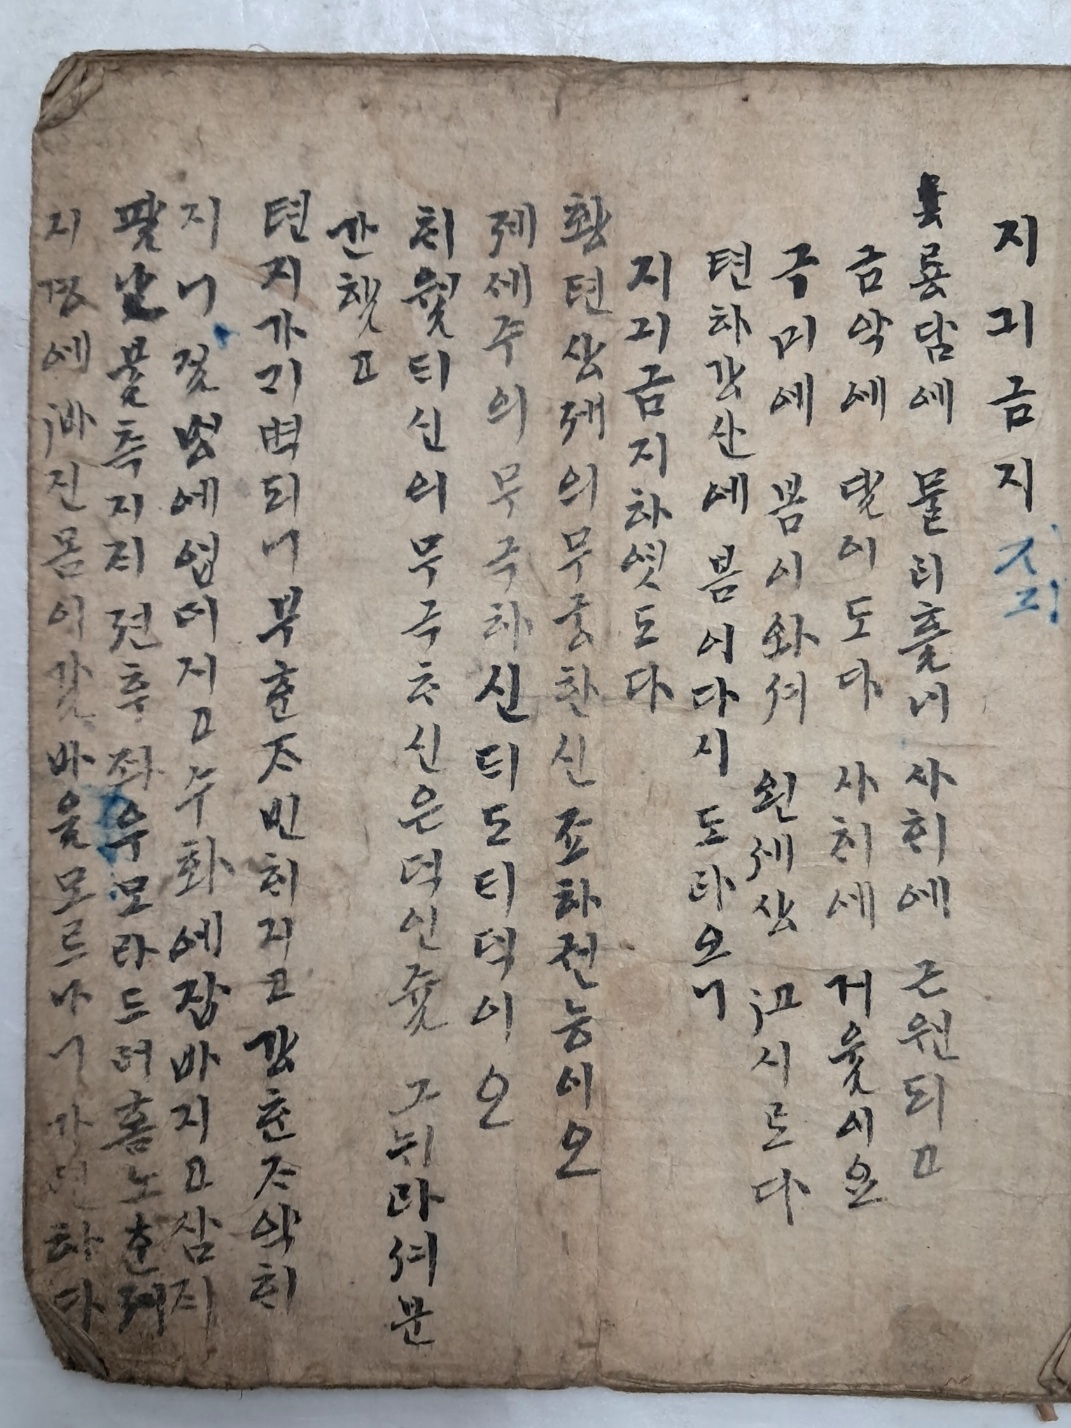 지긔금지 지긔
룡담에 물리흘너 사히에 근원되고
금악에 이도다 사히세 거윳이요
구미에 봄이와셔 왼세상 시로다
텬하강산에 봄이다시 도라오니
지긔금지하엿도다
황텬상졔의무궁한신 죠하젼능이오
졔세주의무극하신 되도리덕이오
되신의무극하신은덕인줄 그뉘라셔분
간햇고
텬지가긔벽되니 부춘조빈히지고 강춘조약히
지니 에업더지고 수화에잡바지고삼지
팔난불측지지 젼후좌우모라드러홈노츤졔
지경에 바진몸이갈바을모르나니 가련하다